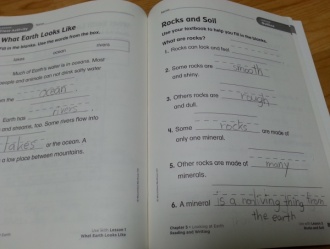 What Earth Looks Like
Fill in the blanks. Use the words from the box.
Much of Earth's water is in oceans. Most
people and animals can not drink salty water.
the ocean
Earth has rivers
and streams, too. Some rivers flow into
lakes or the ocean. A
a low place between mountains.
What Earth Looks Like
Rocks and Soil
Use your textbook to help you fill in the blanks.
What are rocks?
1. Rocks can look and feel
2. Some rocks are smooth
and shiny.
3. Others rocks are rough
and dull.
4. Some rocks are made of
only one mineral.
5. Other rocks are made of many
minerals.
6. A mineral is a not living thing from
the earth
Reading and Writing
Rocks and Soil